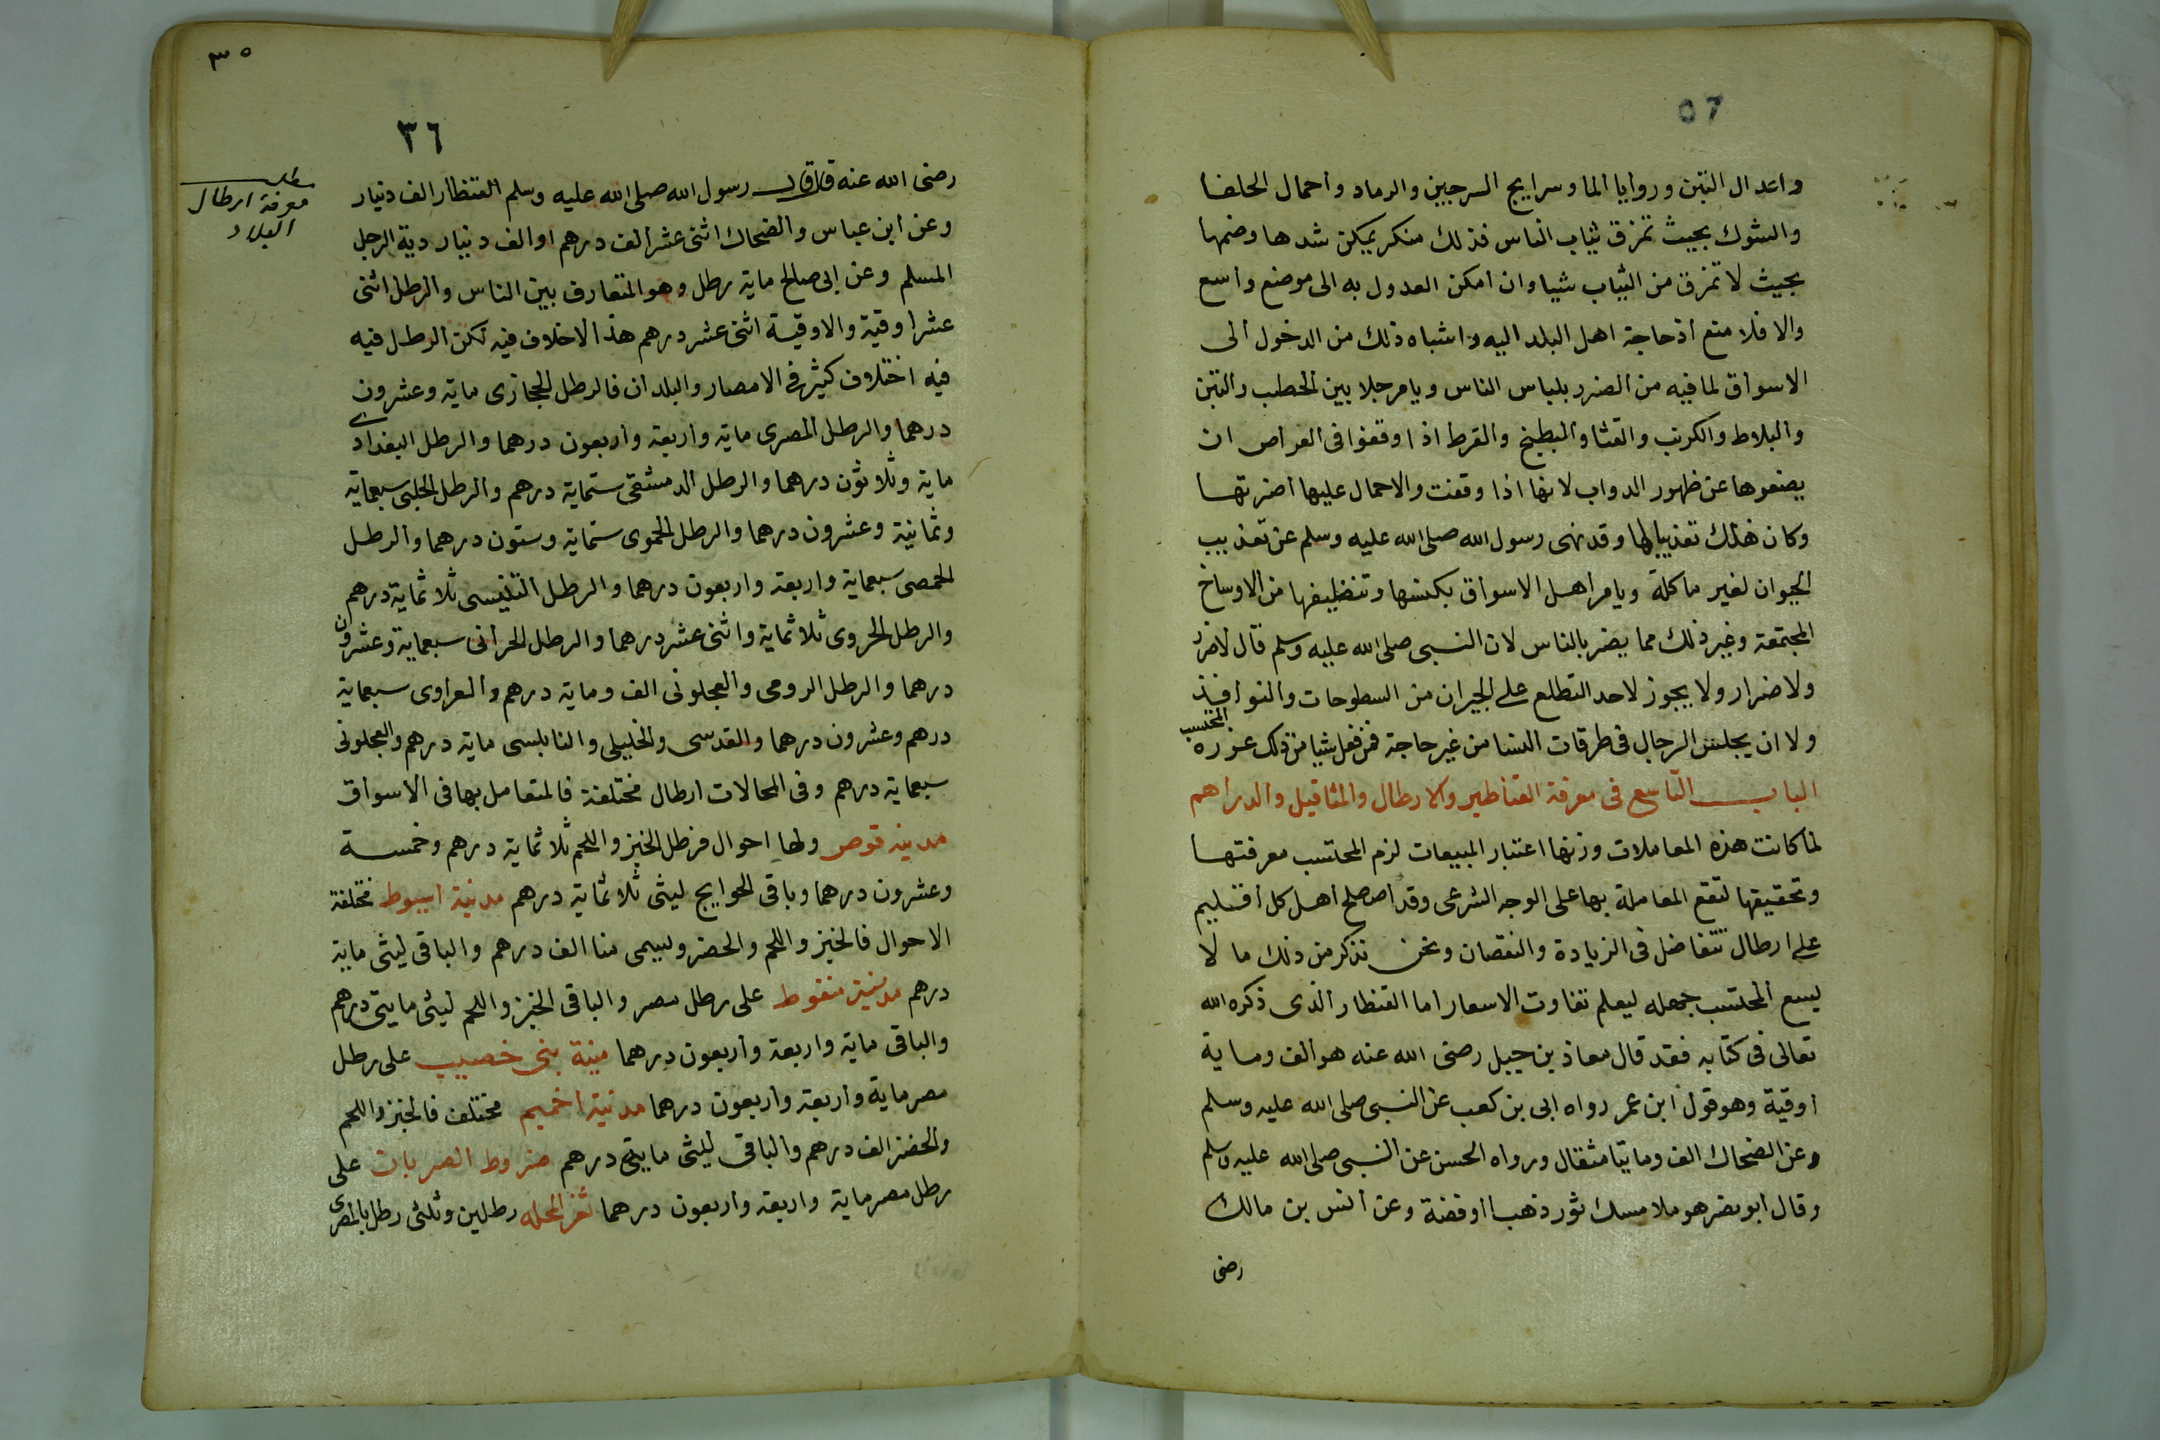 ٥٦
واعدال التبن وروايا الما وسرابيج السرجين والرماد واحمال الحلفا
والشوك بحيث تمزق ثياب الناس فذلك منكر يمكن شدها وضمها
بحيث لا تمزق من الثياب شيا وان امكن العدول به الى موضع واسع
والا فلا منع اذ حاجة اهل البلد اليه واشباه ذلك من الدخول الى
الاسواق لما فيه من الضرر بلباس الناس ويامر جلابين الحطب والتبن
والبلاط والكرنب والقثا والبطيخ والقرط اذا وقفوا فى العراص ان
يضعوها عن ظهور الدواب لانها اذا وقفت والاحمال عليها اضرتها
وكان ذلك تعذيبا لها وقد نهى رسول الله صلى الله عليه وسلم عن تعذيب
الحيوان لغير ماكلة ويامر اهل الاسواق بكنسها وتنظيفها من الاوساخ
المجتمعة وغير ذلك مما يضر بالناس لان النبى صلى الله عليه وسلم قال لا ضرر
ولا ضرار ولا يجوز لاحد التطلع على الجيران من السطوحات والنوافذ
ولا ان يجلس الرجال فى طرقات النسا من غير حاجة فمن فعل شيا من ذلك عزره المحتسب
الباب التاسع فى معرفة القناطير والارطال والمثاقيل والدراهم
لما كانت هذه المعاملات وزنها اعتبار المبيعات لزم المحتسب معرفتها
وتحقيقها لتقع المعاملة بها على الوجه الشرعى وقد اصطلح اهل كل اقليم
على ارطال تتفاضل فى الزيادة والنقصان ونحن نذكر من ذلك ما لا
يسع المحتسب جهله ليعلم تفاوت الاسعار اما القنطار الذى ذكره الله
تعالى فى كتابه فقد قال معاذ بن جبل رضى الله عنه هو الف وماية
اوقية وهو قول ابن عمر رواه ابى بن كعب عن النبى صلى الله عليه وسلم
وعن الضحاك الف وماتيا مثقال ورواه الحسن عن النبى صلى الله عليه وسلم
وقال ابو نضر هو ملا مسك ثور ذهبا او فضة وعن انس بن مالك
رضى
٣٥
٣٦
مطلب
معرفة ارطال
البلاد
رضى الله عنه قال قال رسول الله صلى الله عليه وسلم القنطار الف دنيار
وعن ابن عباس والضحاك اثنى عشر الف درهم او الف دنيار دية الرجل
المسلم وعن ابى صالح ماية رطل وهو المتعارف بين الناس والرطل اثنى
عشر اوقية والاوقية اثنى عشر درهم هذا لا اختلاف فيه لكن الرطل فيه
فيه اختلاف كثير فى الامصار والبلدان فالرطل الحجازى ماية وعشرون
درهما والرطل المصرى ماية واربعة واربعون درهما والرطل البغدادى
ماية وثلاثون درهما والرطل الدمشقى ستماية درهم والرطل الحلبى سبعماية
وثمانية وعشرون درهما والرطل الحموى ستماية وستون درهما والرطل
الحمصى سبعماية واربعة واربعون درهما والرطل التنيسى ثلاثماية درهم
والرطل الحروى ثلاثماية واثنى عشر درهما والرطل الحرانى سبعماية وعشرون
درهما والرطل الرومى والعجلونى الف وماية درهم والعراوى سبعماية
درهم وعشرون درهما والقدسى والخليلى والنابلسى ماية درهم والعجلونى
سبعماية درهم وفى المحالات ارطال مختلفة فالمتعامل بها فى الاسواق
مدينه قوص ولها احوال فرطل الخبز واللحم ثلاثماية درهم وخمسة
وعشرون درهما وباقى الحوايج ليثى ثلاثماية درهم مدنية اسيوط مختلفة
الاحوال فالخبز واللحم والخضر وليسمى منا الف درهم والباقى ليثى ماية
درهم مدنية منفوط على رطل مصر والباقى الخبز واللحم ليثى مايتى درهم
والباقى ماية واربعة واربعون درهما مينة بنى خصيب على رطل
مصر ماية واربعة واربعون درهما مدنية اخميم مختلف فالخبز واللحم
والخضر الف درهم والباقى ليثى مايتى درهم ضروط الصربان على
رطل مصر ماية واربعة واربعون درهما ثغر المحله رطلين وثلثى رطل بالمصرى